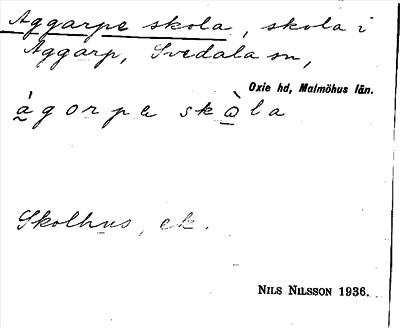 Aggarps skola, skola i
Aggarp, Svedala sn,
Oxie hd, Malmöhus län.
ágorpa skòla
Skolhus, ek.
NILS NILSSON 1936.